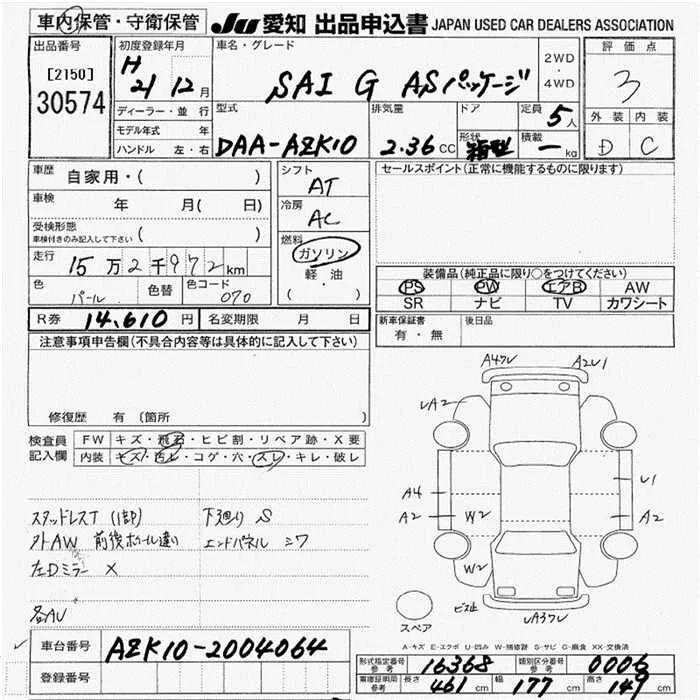 車内保管・守衛保管 JU 愛知 出品申込書 JAPAN USED CAR DEALERS ASSOCIATION
出品番号 [2150] 30574
初度登録年月 H 21 12月
車名・グレード SAI G ASパッケージ
2WD・4WD
評価点 3
外装 内装
D C
ディーラー・並行
モデル年式 年
ハンドル 左・右
型式 DAA-AZK10
排気量 2.36 CC
ドア
形状 箱型
定員 5人
積載 ー kg
車歴 自家用・( )
車検 年 月( 日)
受検形態 車検付きのみ記入して下さい ( )
走行 15万2千972km
色 パール 色替 色コード 070
シフト AT
冷房 AC
燃料 ガソリン
軽・油
( ・ )
セールスポイント(正常に機能するものに限ります)
装備品(純正品に限り○をつけてください)
PS PW エアB AW
SR ナビ TV カワシート
新車保証書 有・無
後日品
R券 14,610円 名変期限 月 日
注意事項申告欄(不具合内容等は具体的に記入して下さい)
修復歴 有 (箇所
検査員記入欄
FW キズ・飛石・ヒビ割・リペア跡・X要
内装 キズ・汚レ・コゲ・穴・スレ・キレ・破レ
スタッドレスT (1部) 下廻り S
外AW 前後ホイール違い エンドパネル シワ
左Dミラー X
各AU
A4ワレ A2U1
UA2
A4 U1
A2 W2 A2
W2
ビス止 UA3ワレ
スペア
A-キズ E-エクボ U-凹み W-補修跡 S-サビ C-腐食 XX-交換済
車台番号 AZK10-2004064
登録番号
型式指定番号 参考 16368 類別区分番号 参考 0006
車庫証明用 参考 長さ 461 cm 幅 177 cm 高さ 149 cm